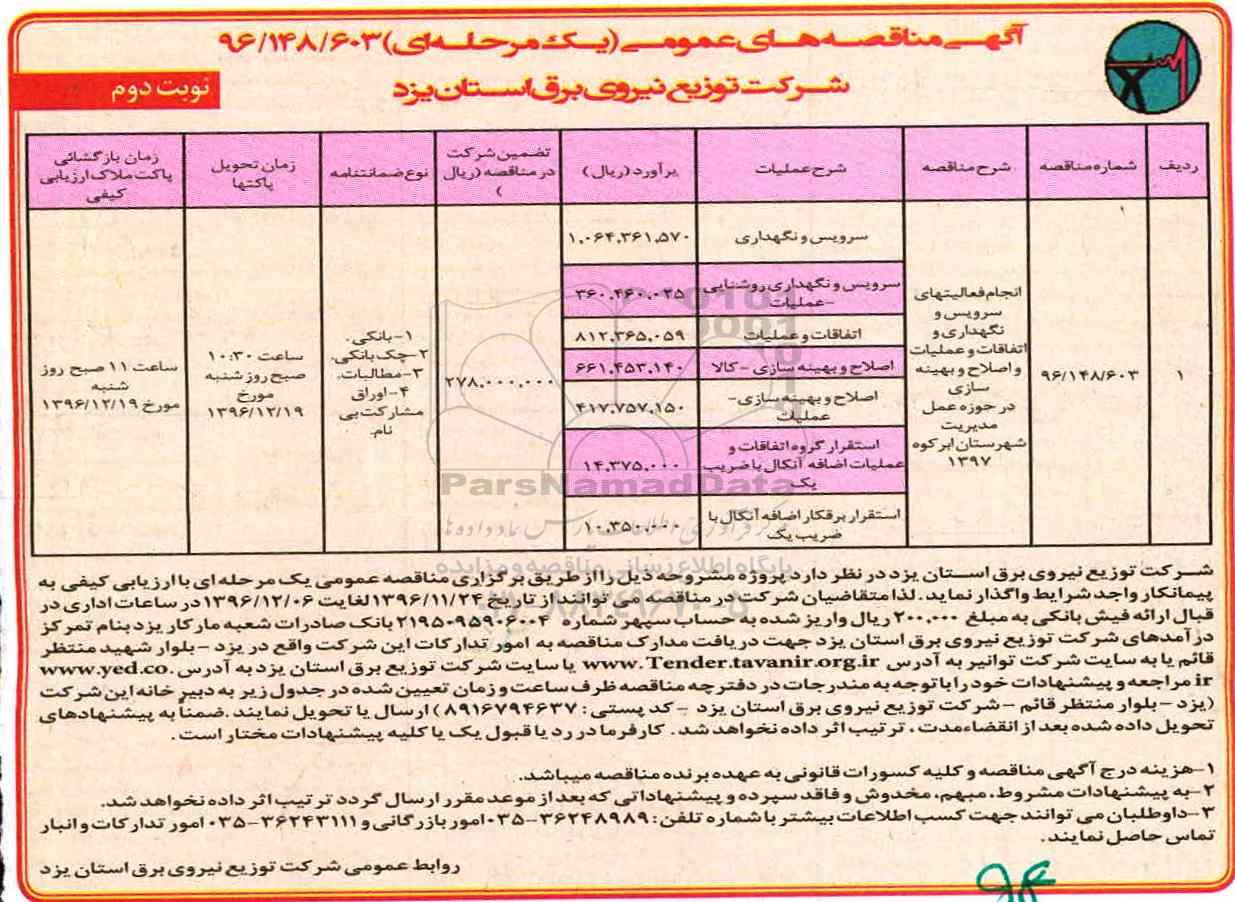 آگهی مناقصه های عمومی (یک مرحله ای) ۹۶/۱۴۸/۶۰۳
شرکت توزیع نیروی برق استان یزد
نوبت دوم
ردیف
شماره مناقصه
شرح مناقصه
شرح عملیات
برآورد (ریال)
تضمین شرکت
در مناقصه (ریال
)
نوع ضمانتنامه
زمان تحویل
پاکتها
زمان بازگشائی
پاکت ملاک ارزیابی
کیفی
۱
۹۶/۱۴۸/۶۰۳
انجام فعالیتهای
سرویس و
نگهداری و
اتفاقات و عملیات
و اصلاح و بهینه
سازی
در حوزه عمل
مدیریت
شهرستان ابرکوه
۱۳۹۷
سرویس و نگهداری
۱.۰۶۴.۳۶۱.۵۷۰
سرویس و نگهداری روشنایی
-عملیات
۳۶۰.۴۶۰.۰۲۵
اتفاقات و عملیات
۸۱۲.۳۶۵.۰۵۹
اصلاح و بهینه سازی - کالا
۶۶۱.۴۵۳.۱۴۰
اصلاح و بهینه سازی-
عملیات
۴۱۷.۷۵۷.۱۵۰
استقرار گروه اتفاقات و
عملیات اضافه آنکال با ضریب
یک
۱۴.۳۷۵.۰۰۰
استقرار برقکار اضافه آنکال با
ضریب یک
۱۰.۳۵۰.۰۰۰
۲۷۸.۰۰۰.۰۰۰
۱-بانکی.
۲-چک بانکی.
۳-مطالبات.
۴-اوراق
مشارکت بی
نام.
ساعت ۱۰:۳۰
صبح روز شنبه
مورخ
۱۳۹۶/۱۲/۱۹
ساعت ۱۱ صبح روز
شنبه
مورخ ۱۳۹۶/۱۲/۱۹
ParsNamadData
پایگاه اطلاع رسانی مناقصه و مزایده
شرکت توزیع نیروی برق استان یزد در نظر دارد پروژه مشروحه ذیل را از طریق برگزاری مناقصه عمومی یک مرحله ای با ارزیابی کیفی به
پیمانکار واجد شرایط واگذار نماید. لذا متقاضیان شرکت در مناقصه می توانند از تاریخ ۱۳۹۶/۱۱/۲۴ لغایت ۱۳۹۶/۱۲/۰۶ در ساعات اداری در
قبال ارائه فیش بانکی به مبلغ ۲۰۰.۰۰۰ ریال واریز شده به حساب سپهر شماره ۲۱۹۵۰۹۵۹۰۶۰۰۴ بانک صادرات شعبه مارکار یزد بنام تمرکز
درآمدهای شرکت توزیع نیروی برق استان یزد جهت دریافت مدارک مناقصه به امور تدارکات این شرکت واقع در یزد - بلوار شهید منتظر
قائم یا به سایت شرکت توانیر به آدرس www.Tender.tavanir.org.ir یا سایت شرکت توزیع برق استان یزد به آدرس www.yed.co.
ir مراجعه و پیشنهادات خود را با توجه به مندرجات در دفترچه مناقصه ظرف ساعت و زمان تعیین شده در جدول زیر به دبیرخانه این شرکت
(یزد - بلوار منتظر قائم - شرکت توزیع نیروی برق استان یزد - کد پستی: ۸۹۱۶۷۹۴۶۳۷) ارسال یا تحویل نمایند. ضمناً به پیشنهادهای
تحویل داده شده بعد از انقضاء مدت، ترتیب اثر داده نخواهد شد. کارفرما در رد یا قبول یک یا کلیه پیشنهادات مختار است.
۱-هزینه درج آگهی مناقصه و کلیه کسورات قانونی به عهده برنده مناقصه میباشد.
۲-به پیشنهادات مشروط، مبهم، مخدوش و فاقد سپرده و پیشنهاداتی که بعد از موعد مقرر ارسال گردد ترتیب اثر داده نخواهد شد.
۳-داوطلبان می توانند جهت کسب اطلاعات بیشتر با شماره تلفن: ۳۶۲۴۸۹۸۹-۰۳۵ امور بازرگانی و ۳۶۲۴۳۱۱۱-۰۳۵ امور تدارکات و انبار
تماس حاصل نمایند.
روابط عمومی شرکت توزیع نیروی برق استان یزد